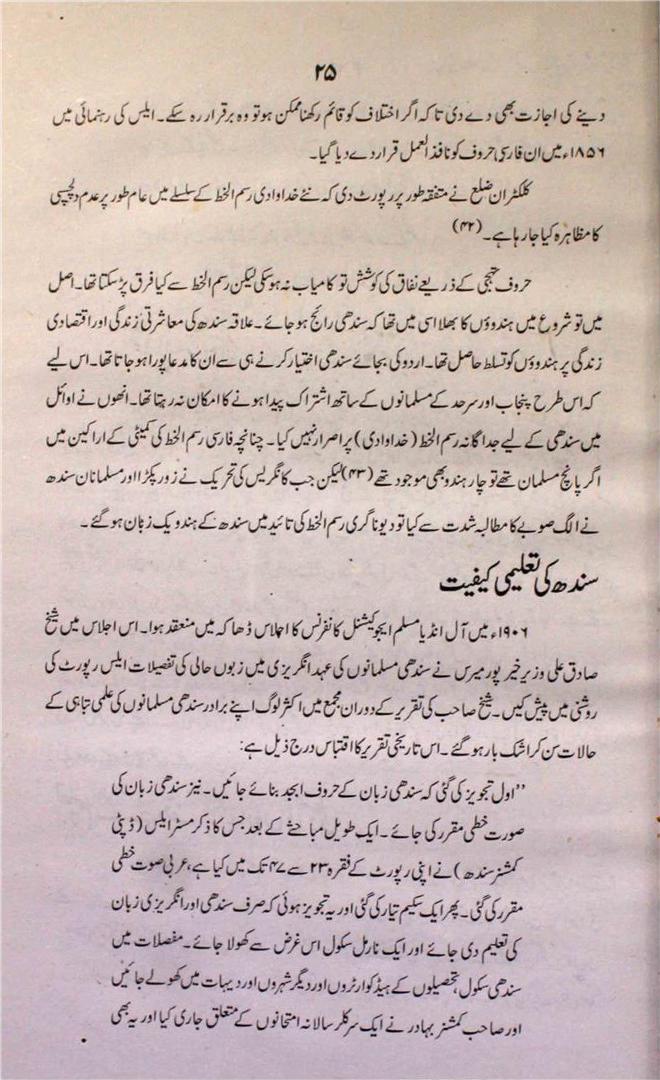 ۲۵
دینے کی اجازت بھی دے دی تاکہ اگر اختلاف کو قائم رکھنا ممکن ہو تو وہ برقرار رہ سکے۔ ایلس کی رہنمائی میں
۱۸۵۶ء میں ان فارسی حروف کو نافذ العمل قرار دے دیا گیا۔
کلکٹران ضلع نے متفقہ طور پر رپورٹ دی کہ نئے خداوادی رسم الخط کے سلسلے میں عام طور پر عدم دلچسپی
کا مظاہرہ کیا جا رہا ہے۔ (۴۲)
حروف تہجی کے ذریعے نفاق کی کوشش تو کامیاب نہ ہو سکی لیکن رسم الخط سے کیا فرق پڑ سکتا تھا۔ اصل
میں تو شروع میں ہندوؤں کا بھلا اسی میں تھا کہ سندھی رائج ہو جائے۔ علاقہ سندھ کی معاشرتی زندگی اور اقتصادی
زندگی پر ہندوؤں کو تسلط حاصل تھا۔ اردو کی بجائے سندھی اختیار کرنے ہی سے ان کا مدعا پورا ہو جاتا تھا۔ اس لیے
کہ اس طرح پنجاب اور سرحد کے مسلمانوں کے ساتھ اشتراک پیدا ہونے کا امکان نہ رہتا تھا۔ انھوں نے اوائل
میں سندھی کے لیے جداگانہ رسم الخط (خداوادی) پر اصرار نہیں کیا۔ چنانچہ فارسی رسم الخط کی کمیٹی کے اراکین میں
اگر پانچ مسلمان تھے تو چار ہندو بھی موجود تھے (۴۳) لیکن جب کانگریس کی تحریک نے زور پکڑا اور مسلمانان سندھ
نے الگ صوبے کا مطالبہ شدت سے کیا تو دیوناگری رسم الخط کی تائید میں سندھ کے ہندو یک زبان ہو گئے۔
سندھ کی تعلیمی کیفیت
۱۹۰۶ء میں آل انڈیا مسلم ایجوکیشنل کانفرنس کا اجلاس ڈھاکہ میں منعقد ہوا۔ اس اجلاس میں شیخ
صادق علی وزیر خیر پور میرس نے سندھی مسلمانوں کی عہد انگریزی میں زبوں حالی کی تفصیلات ایلس رپورٹ کی
روشنی میں پیش کیں۔ شیخ صاحب کی تقریر کے دوران مجمع میں اکثر لوگ اپنے برادر سندھی مسلمانوں کی علمی تباہی کے
حالات سن کر اشک بار ہو گئے۔ اس تاریخی تقریر کا اقتباس درج ذیل ہے:
”اول تجویز کی گئی کہ سندھی زبان کے حروف ابجد بنائے جائیں۔ نیز سندھی زبان کی
صورت خطی مقرر کی جائے۔ ایک طویل مباحثے کے بعد جس کا ذکر مسٹر ایلس (ڈپٹی
کمشنر سندھ) نے اپنی رپورٹ کے فقرہ ۲۳ سے ۴۷ تک میں کیا ہے، عربی صوت خطی
مقرر کی گئی۔ پھر ایک سکیم تیار کی گئی اور یہ تجویز ہوئی کہ صرف سندھی اور انگریزی زبان
کی تعلیم دی جائے اور ایک نارمل سکول اس غرض سے کھولا جائے۔ مفصلات میں
سندھی سکول، تحصیلوں کے ہیڈ کوارٹروں اور دیگر شہروں اور دیہات میں کھولے جائیں
اور صاحب کمشنر بہادر نے ایک سرکلر سالانہ امتحانوں کے متعلق جاری کیا اور یہ بھی